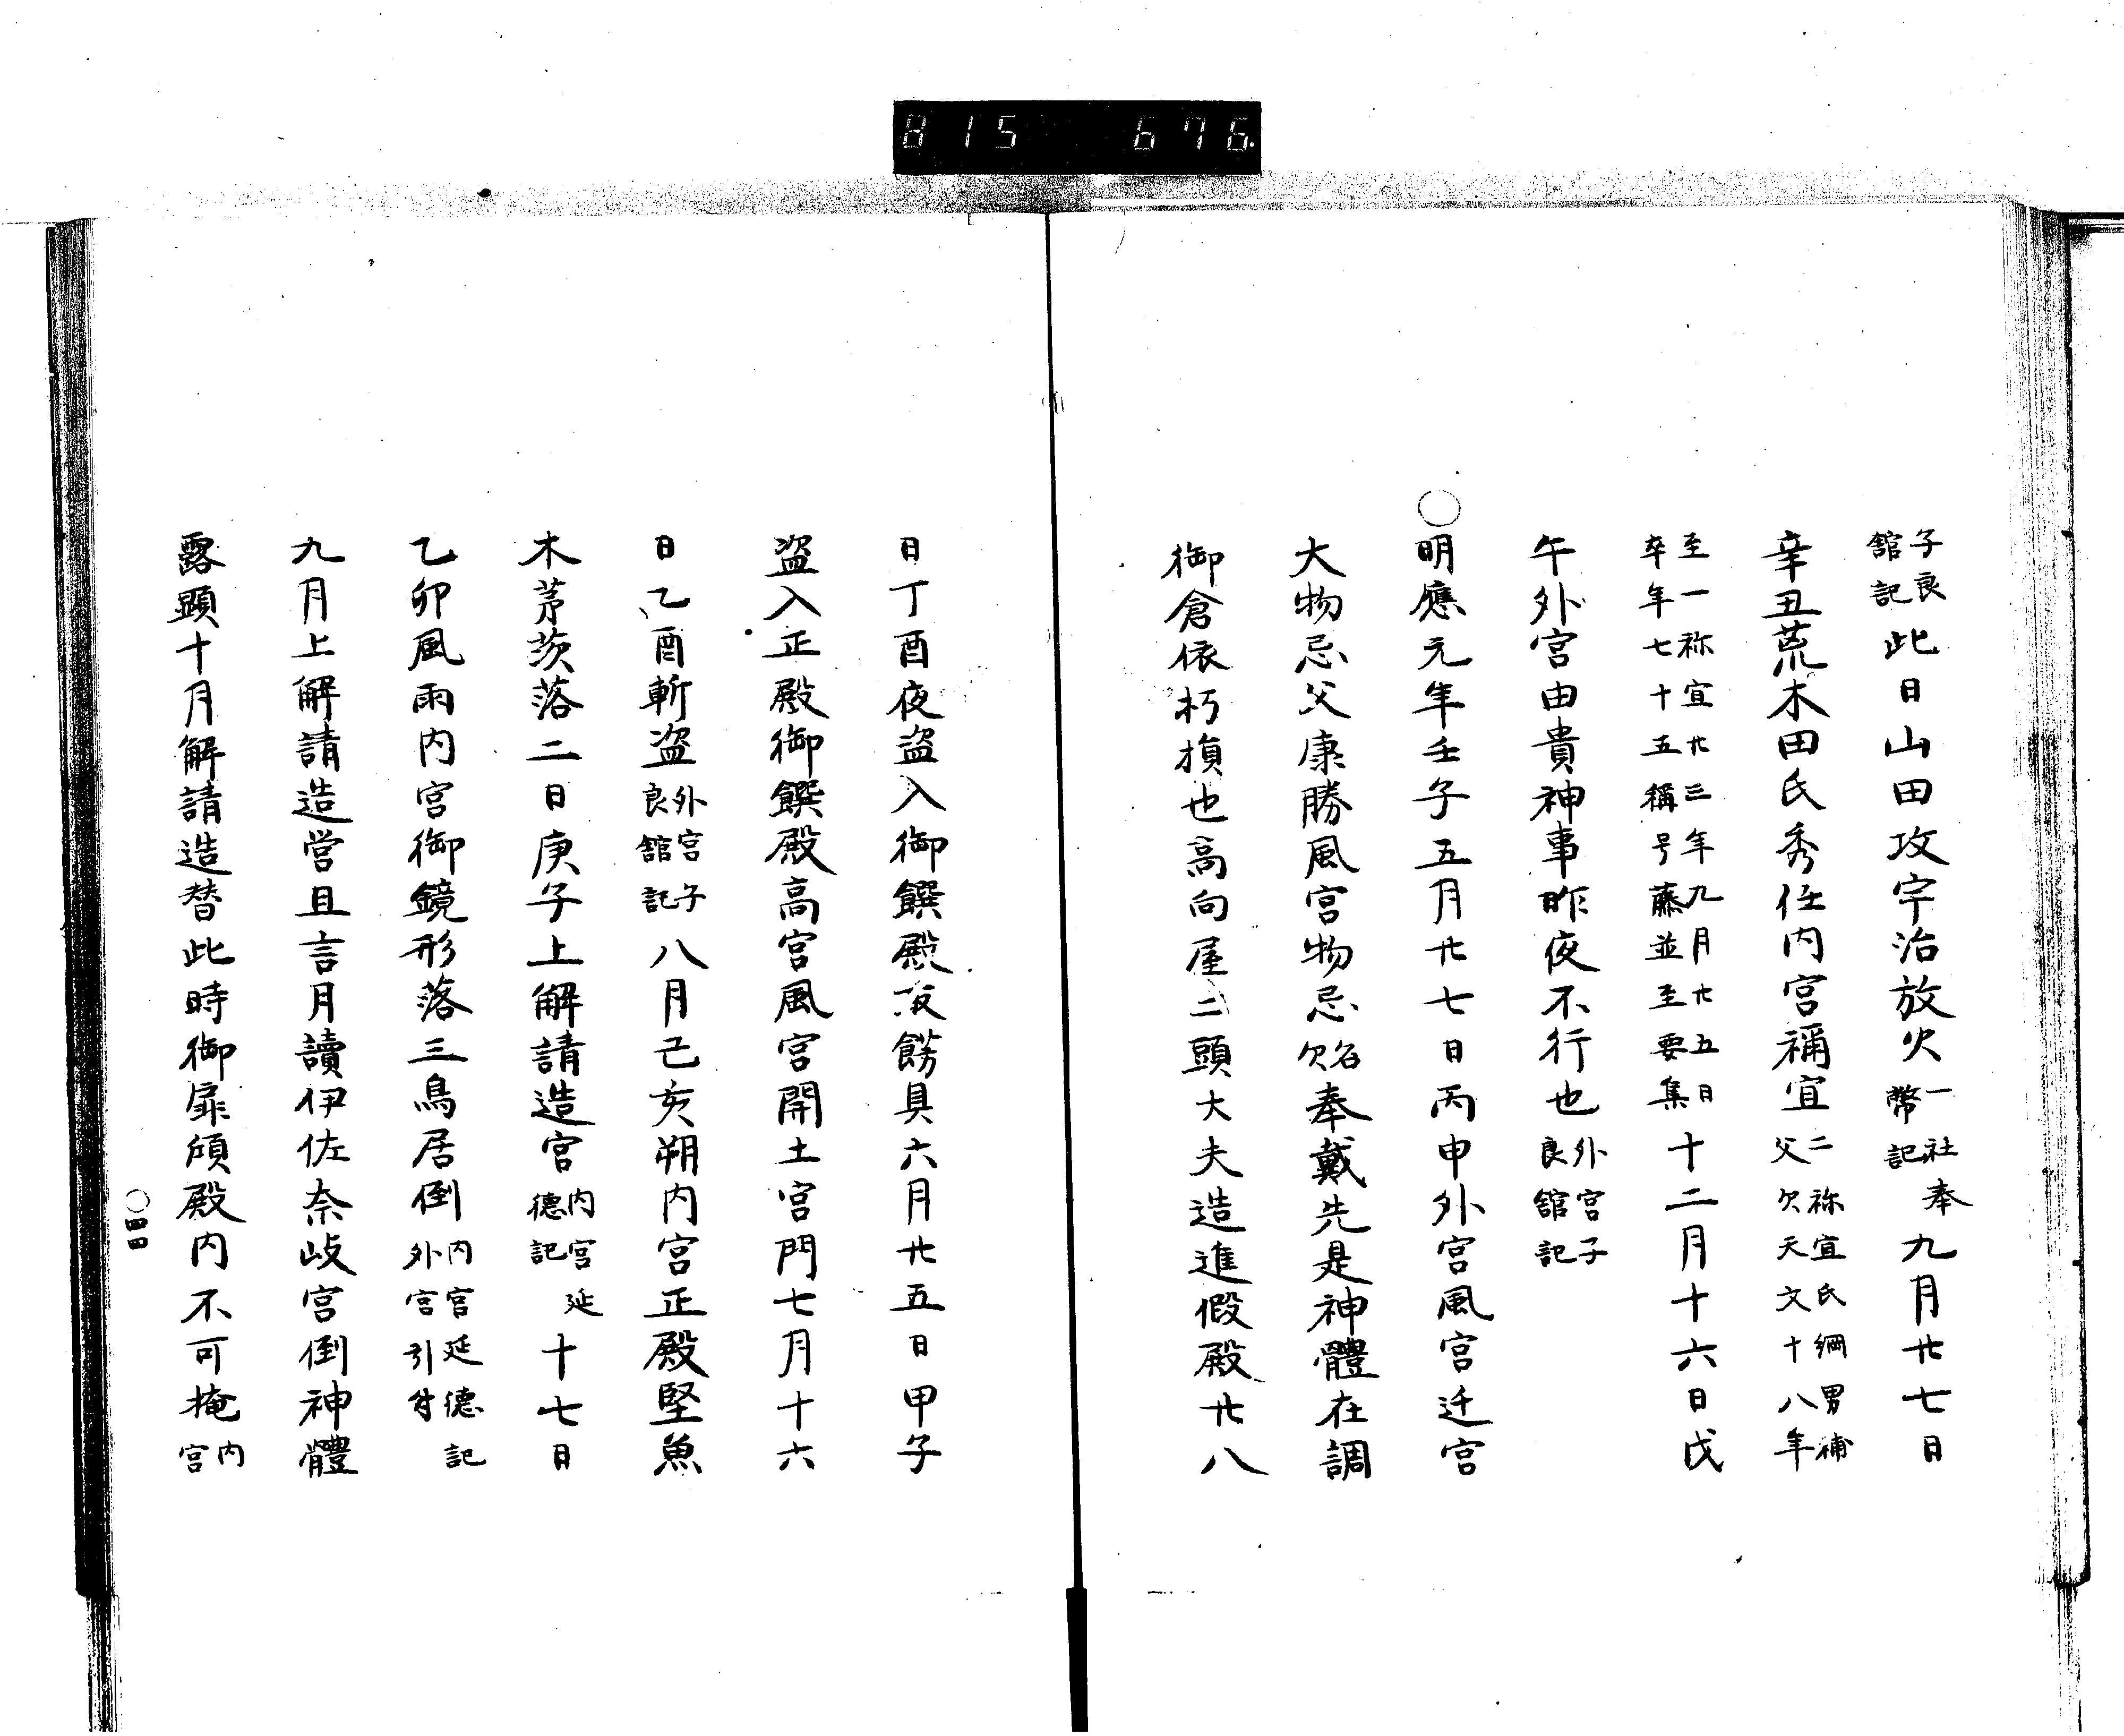 815 676.
子良館記此日山田攻宇治放火一社奉幣記九月廿七日
辛丑荒木田氏秀任内宮禰宜二祢宜氏綱男補父欠天文十八年
至一祢宜廿三年九月廿五日卒年七十五稱号藤並至要集十二月十六日戊
午外宮由貴神事昨夜不行也外宮子良館記
○明應元年壬子五月廿七日丙申外宮風宮迁宮
大物忌父康勝風宮物忌名欠奉戴先是神體在調
御倉依朽損也高向屋二頭大夫造進假殿廿八
日丁酉夜盗入御饌殿取餝具六月廿五日甲子
盗入正殿御饌殿高宮風宮開土宮門七月十六
日乙酉斬盗外宮子良館記八月己亥朔内宮正殿堅魚
木茅茨落二日庚子上解請造宮内宮延德記十七日
乙卯風雨内宮御鏡形落三鳥居倒内宮延德記外宮引付
九月上解請造営且言月讀伊佐奈岐宮倒神體
露顕十月解請造替此時御扉傾殿内不可掩内宮
○四四